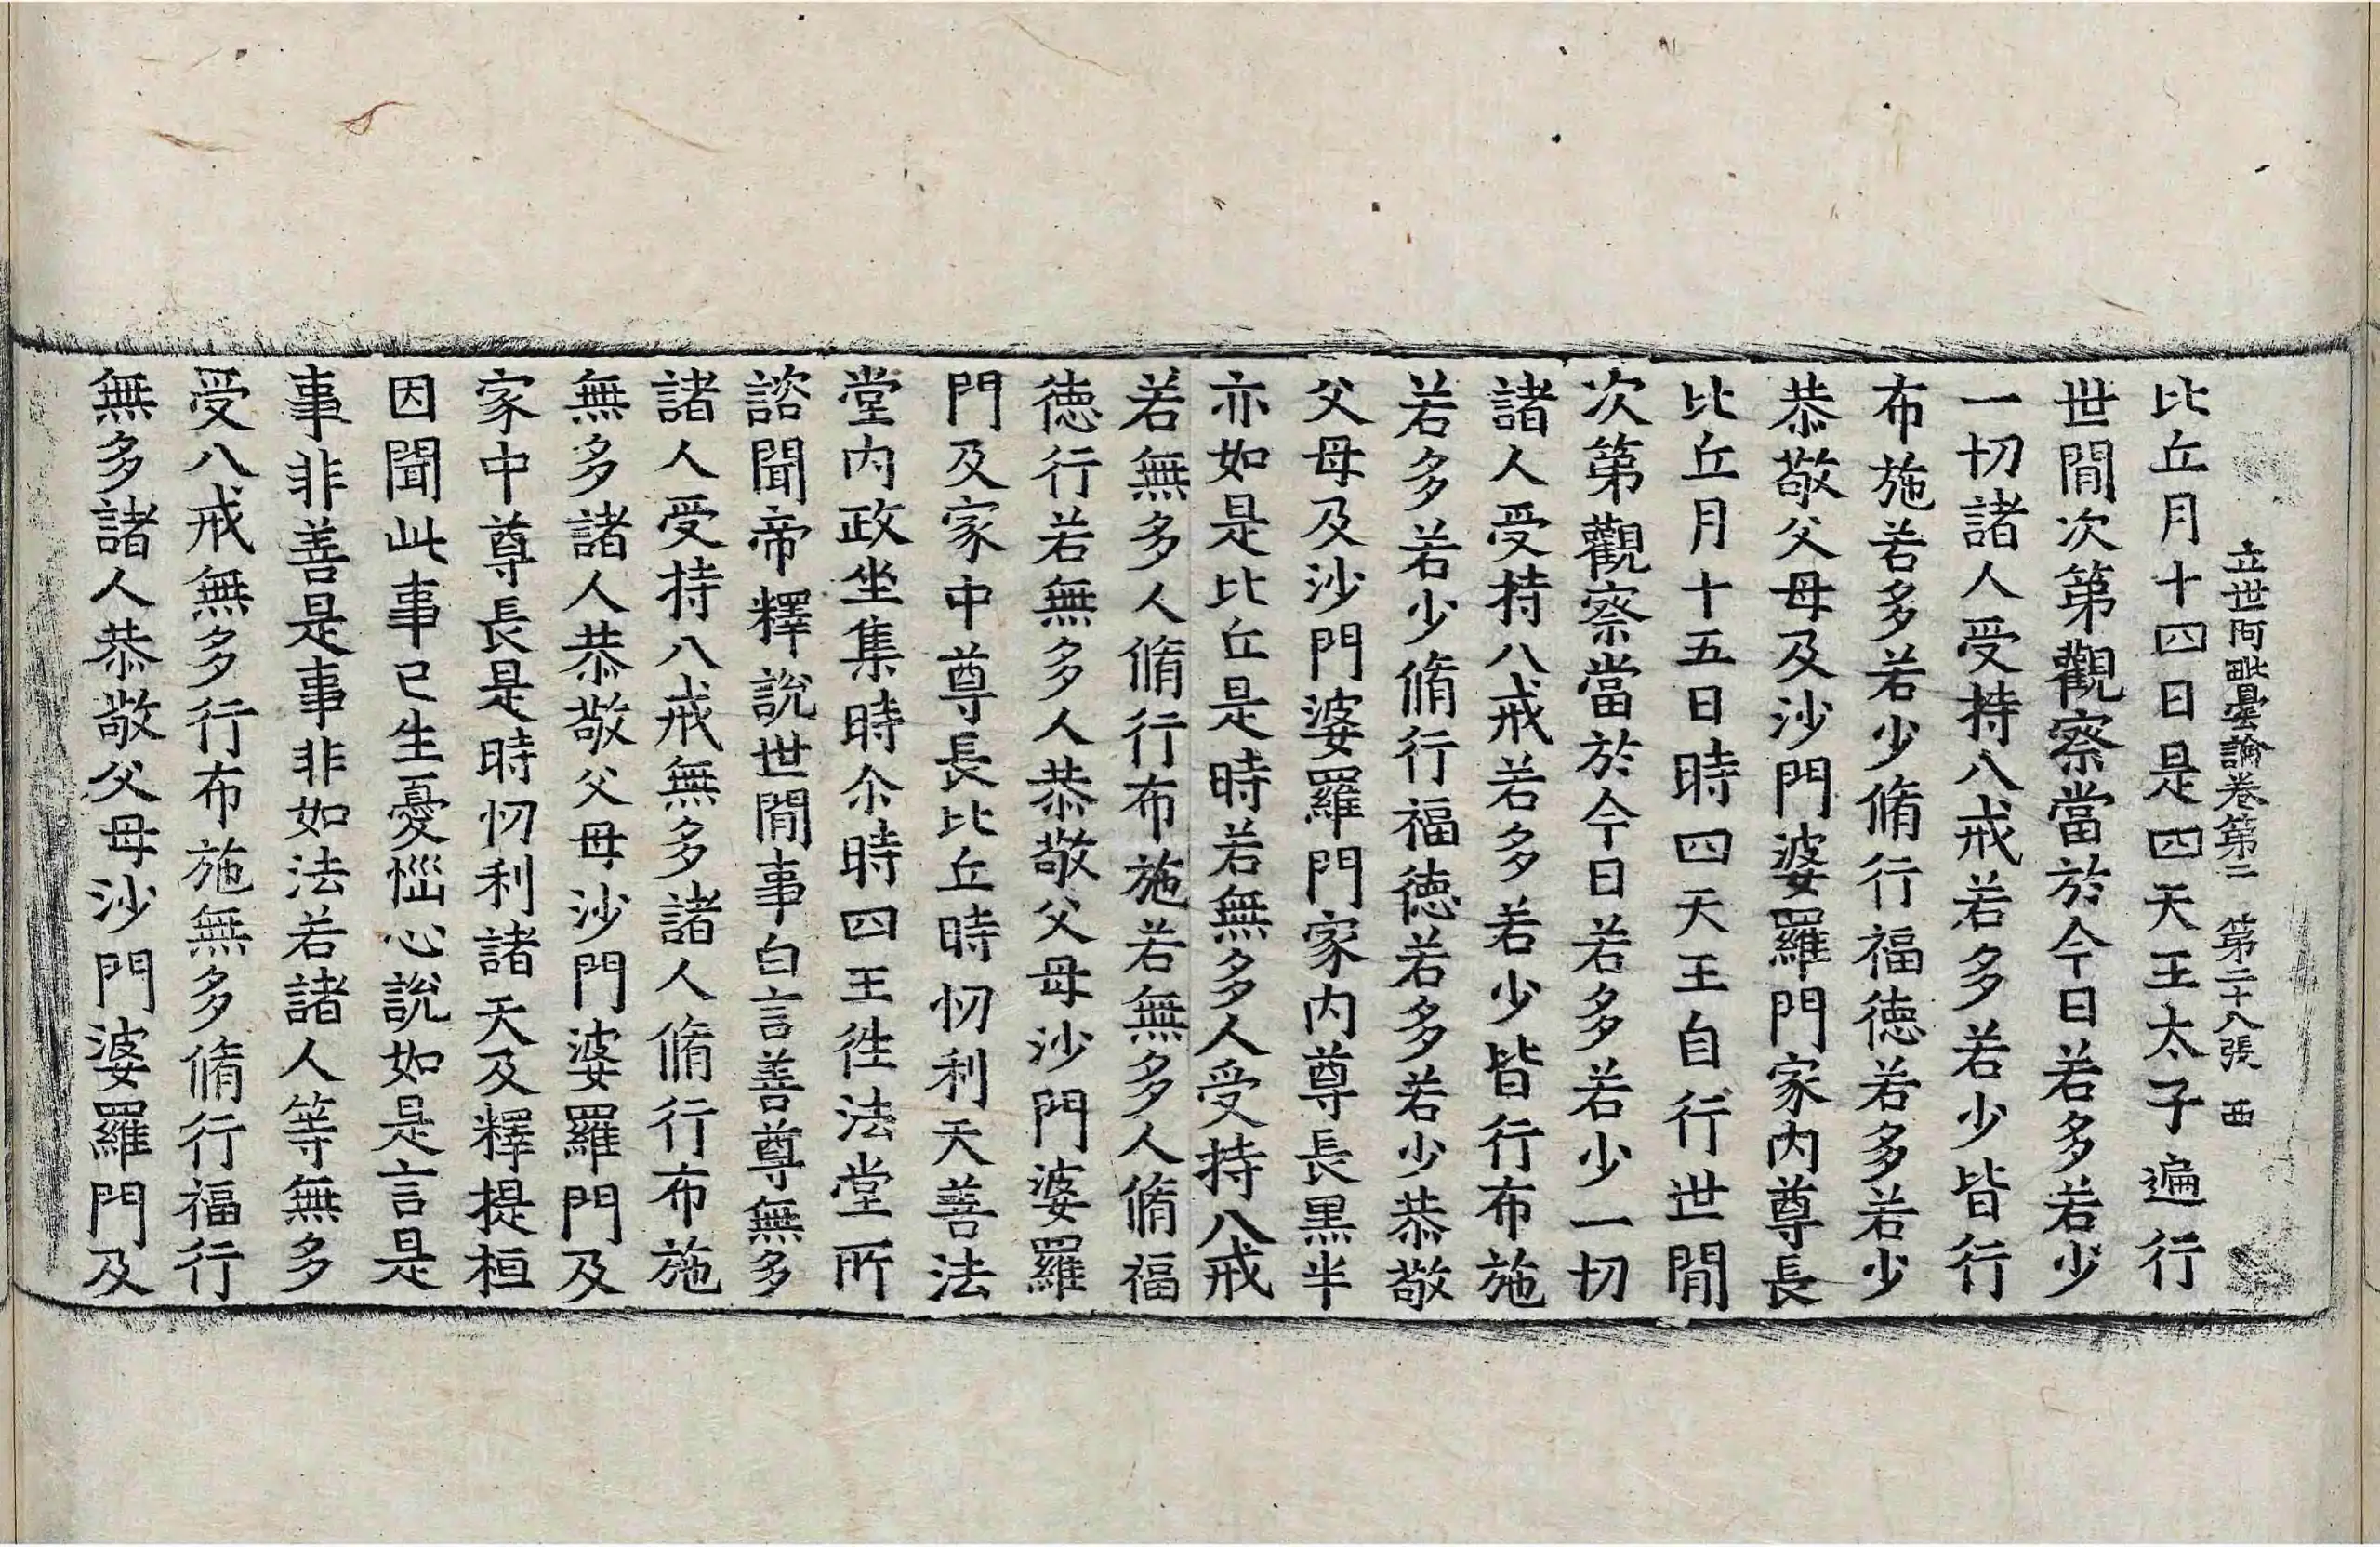 立世阿毗曇論卷第二 第二十八張 西
比丘月十四日是四天王太子遍行
世間次第觀察當於今日若多若少
一切諸人受持八戒若多若少皆行
布施若多若少脩行福德若多若少
恭敬父母及沙門婆羅門家內尊長
比丘月十五日時四天王自行世間
次第觀察當於今日若多若少一切
諸人受持八戒若多若少皆行布施
若多若少脩行福德若多若少恭敬
父母及沙門婆羅門家內尊長黑半
亦如是比丘是時若無多人受持八戒
若無多人脩行布施若無多人脩福
德行若無多人恭敬父母沙門婆羅
門及家中尊長比丘時忉利天善法
堂內政坐集時尒時四王徃法堂所
諮聞帝釋說世間事白言善尊無多
諸人受持八戒無多諸人脩行布施
無多諸人恭敬父母沙門婆羅門及
家中尊長是時忉利諸天及釋提桓
因聞此事已生憂惱心說如是言是
事非善是事非如法若諸人等無多
受八戒無多行布施無多脩行福行
無多諸人恭敬父母沙門婆羅門及